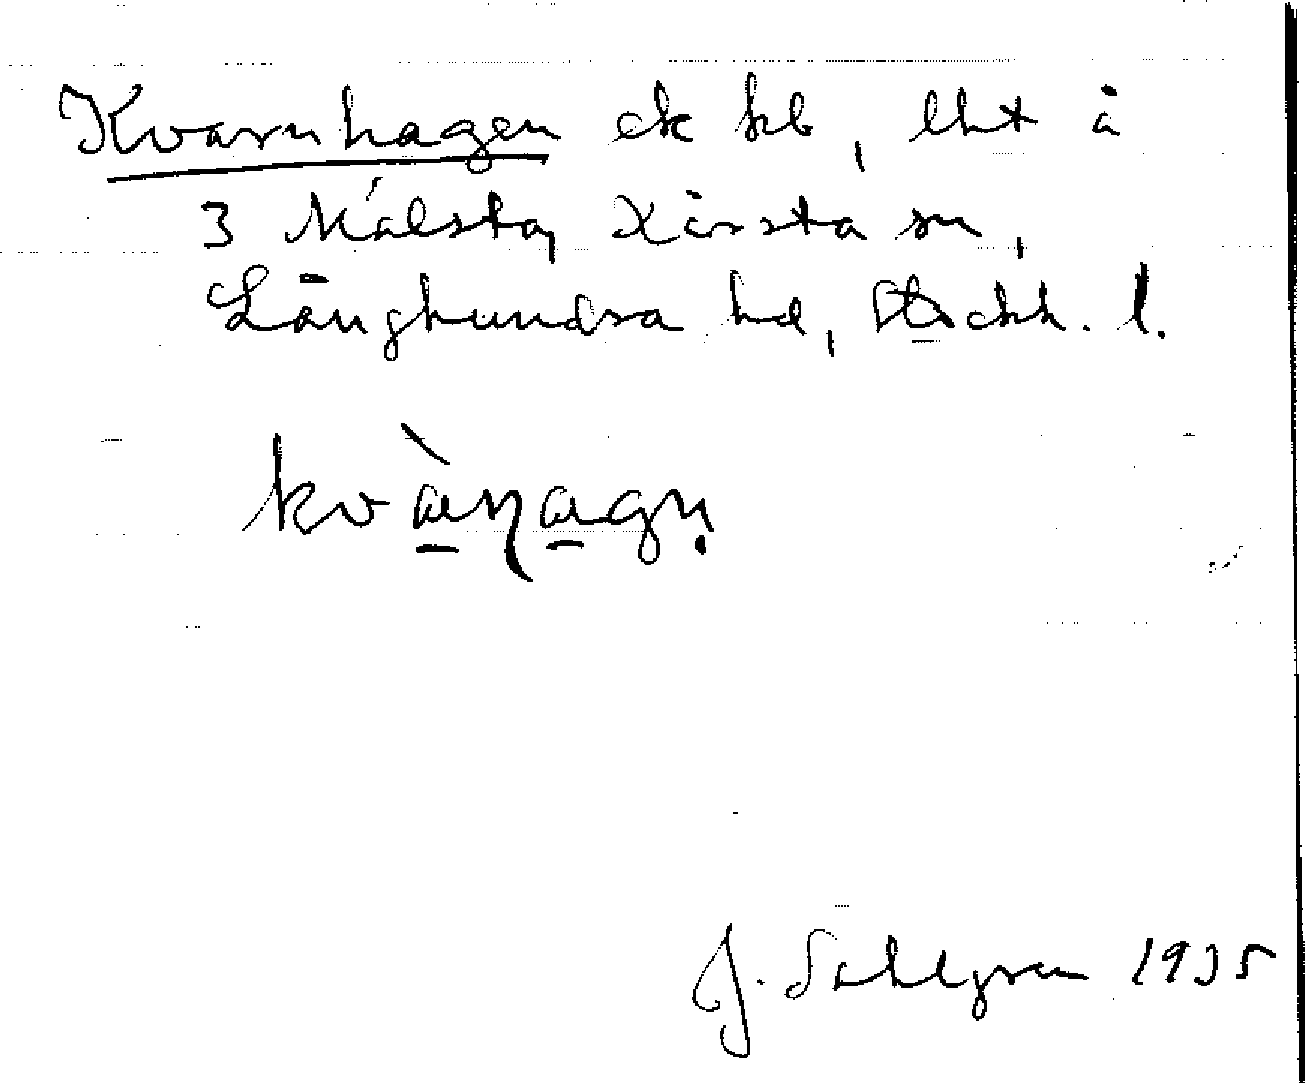 Kvarnhagen ek hb, lht å
3 Målsta, Kårsta sn,
Långhundra hd, Stockh. l.
kvàɳagn̥
J. Sahlgren 1935